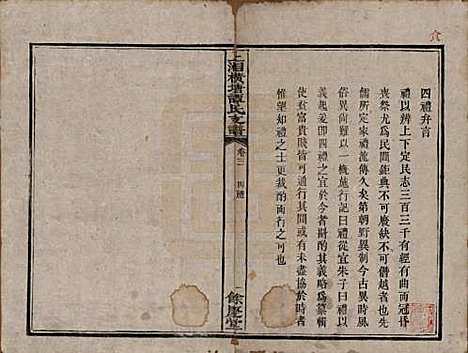 四禮弁言
禮以辨上下定民志三百三千有經有曲而冠昏
喪祭尤爲民間鉅典不可廢缺不可僭越者也世
儒所定家禮流傳久矣第朝野異制今古異時風
俗異尚難以一概施行記曰禮從宜朱子曰禮以
義起爰即四禮之宜於今者斟酌其義略爲纂輯
使貧富貴賤皆可通行其間或有未盡協於時者
惟望知禮之士更裁酌而行之可也
上湘橫塘譚氏支譜
卷三
四禮
餘慶堂